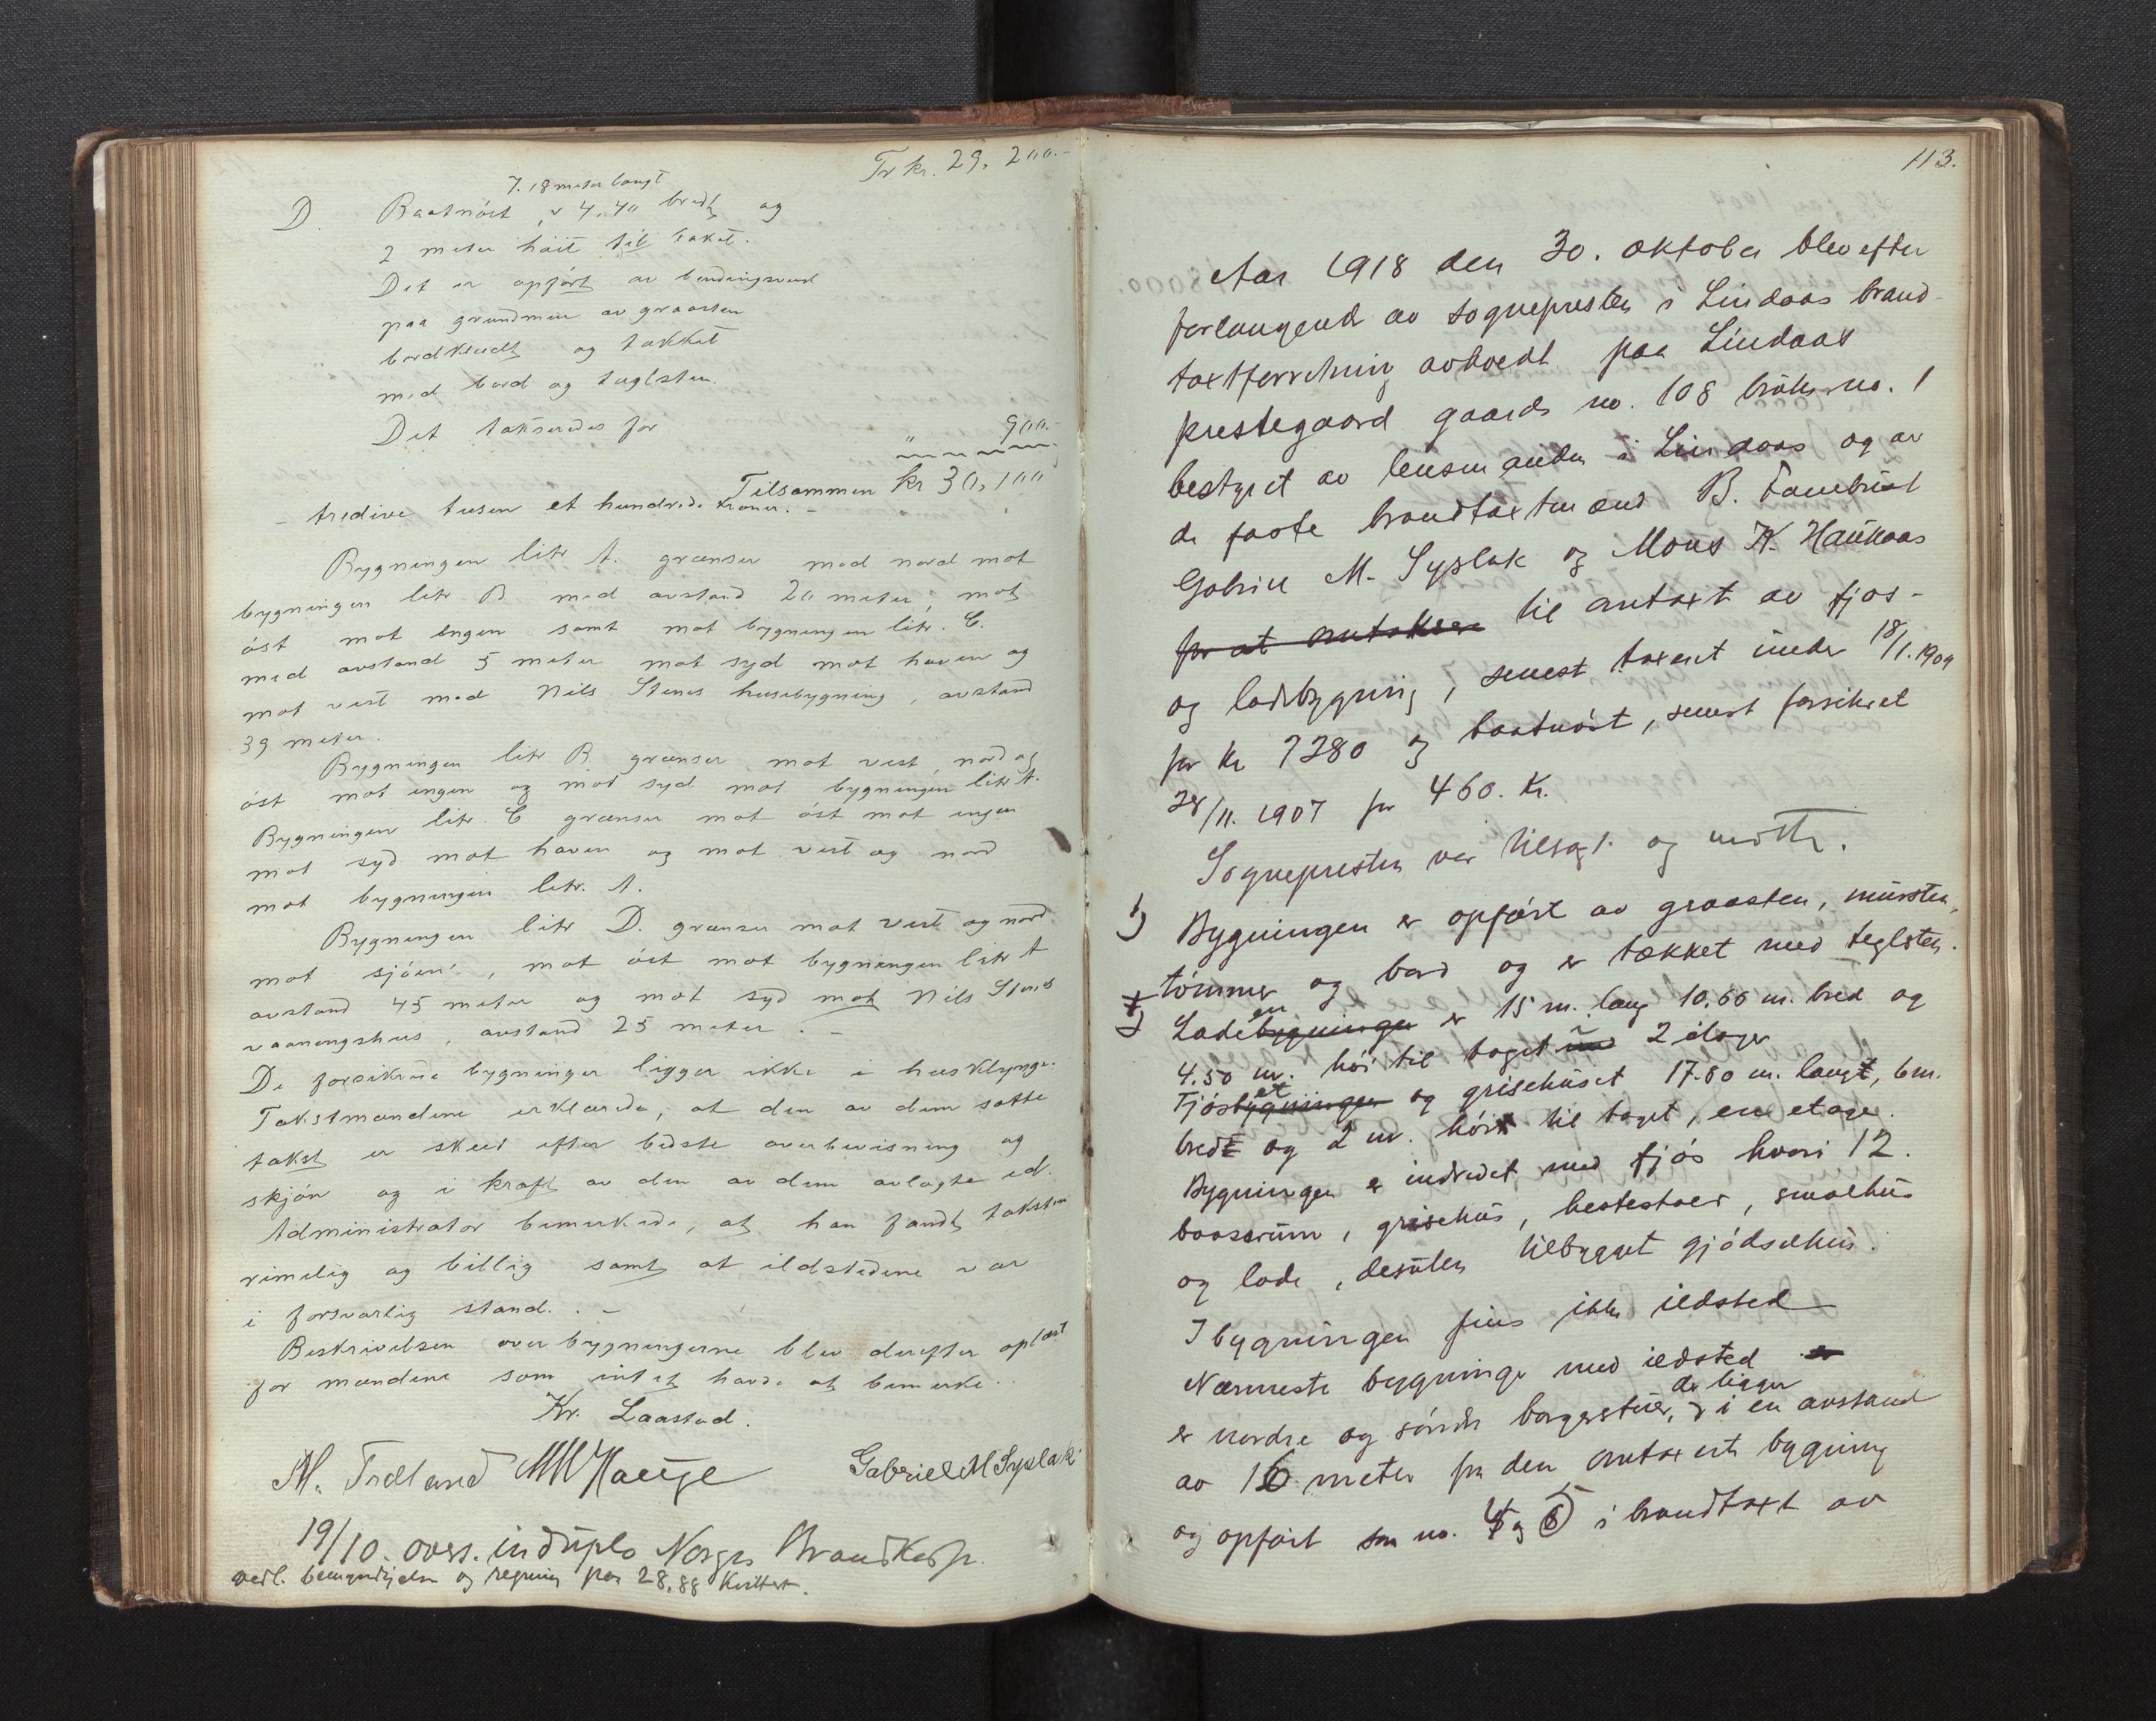 Tr kr. 29,200.-
7.18 meter langt
D. Baatnöst, 4,40 bredt og
2 meter höit til taket.
Det er opfört av bindingsverk
paa grundmur av graasten
bordklædt og tækket
med bord og taglsten.
Det takseredes for " 900.-
Tilsammen kr 30,100
- tredive tusen et hundrede kroner. -
Bygningen litr A. grænser med nord mot
bygningen litr B med avstand 20 meter, mot
öst mot engen samt mot bygningen litr. C.
med avstand 5 meter mot syd mot haven og
mot vest med Nils Stenes husebygning, avstand
39 meter.
Bygningen litr B grænser mot vest, nord og
öst mot engen og mot syd mot bygningen litr A.
Bygningen litr. C grænser mot öst mot engen
mot syd mot haven og mot vest og nord
mot bygningen litr. A.
Bygningen litr D. grænser mot vest og nord
mot sjöen, mot öst mot bygningen litr A
avstand 45 meter og mot syd mot Nils Stenes
vaaningshus, avstand 25 meter. -
De forsikrede bygninger ligger ikke i husklynge.
Takstmændene erklærede, at den av dem satte
takst er skeed efter bedste overbevisning og
skjön og i kraft av den av dem avlagte ed.
Administrator bemerkede, at han fandt taksten
rimelig og billig samt at ildstedene var
i forsvarlig stand. -
Beskrivelsen over bygningerne blev derefter oplæst
for mændene som intet havde at bemerke.
Kr. Laastad.
M. Fredland MMHauge Gabriel M Syslak
19/10. overs. in duplo Norges Brandkasse.
vedl. bemyndigelse og regning paa 28,88 kvittert.
113.
Aar 1918 den 30. oktober blev efter
forlangende av sognepresten i Lindaas brand
taxtforretning avholdt paa Lindaas
prestegaard gaards no. 108 bruks no. 1
bestyret av lensmanden i Lindaas og av
de faste brandtaxtmænd B. Fanebust
Gabriel M. Syslak og Mons K. Haukaas
for at omtaksere til omtaxt av fjos-
og ladebygning, senest taxeret under 18/1.1909
for kr 7280 og baatnöst, senest forsikret
28/11. 1907 for 460. Kr.
Sognepresten var tilsagt og mötte.
1) Bygningen er opført av graasten, mursten,
tömmer og bord og er tækket med teglsten.
Ladebygningen en er 15 m. lang 10,60 m. bred og
4.50 m. höi til taget med 2 etager
Fjösbygningen et og grisehuset 17.80 m. langt, 6 m.
bredt og 2 m. höit til taget, en etage.
Bygningen er indredet med fjös hvori 12.
baaserum, grisehus, hestestald, smalehus
og lade, desuten tilbygget gjödselhus.
I bygningen fins ikke ildsted
Nærmeste bygninger med ildsted er
er nordre og söndre borgerstuer, der ligger i en avstand
av 16 meter fra den omtaxerte bygning
og opfört som no. 4 og 5 i brandtaxt av